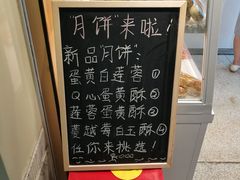 "月饼"来啦!
新品"月饼":
蛋黄白莲蓉①
Q心蛋黄酥②
莲蓉蛋黄酥③
蔓越莓白玉酥④
任你来挑选!